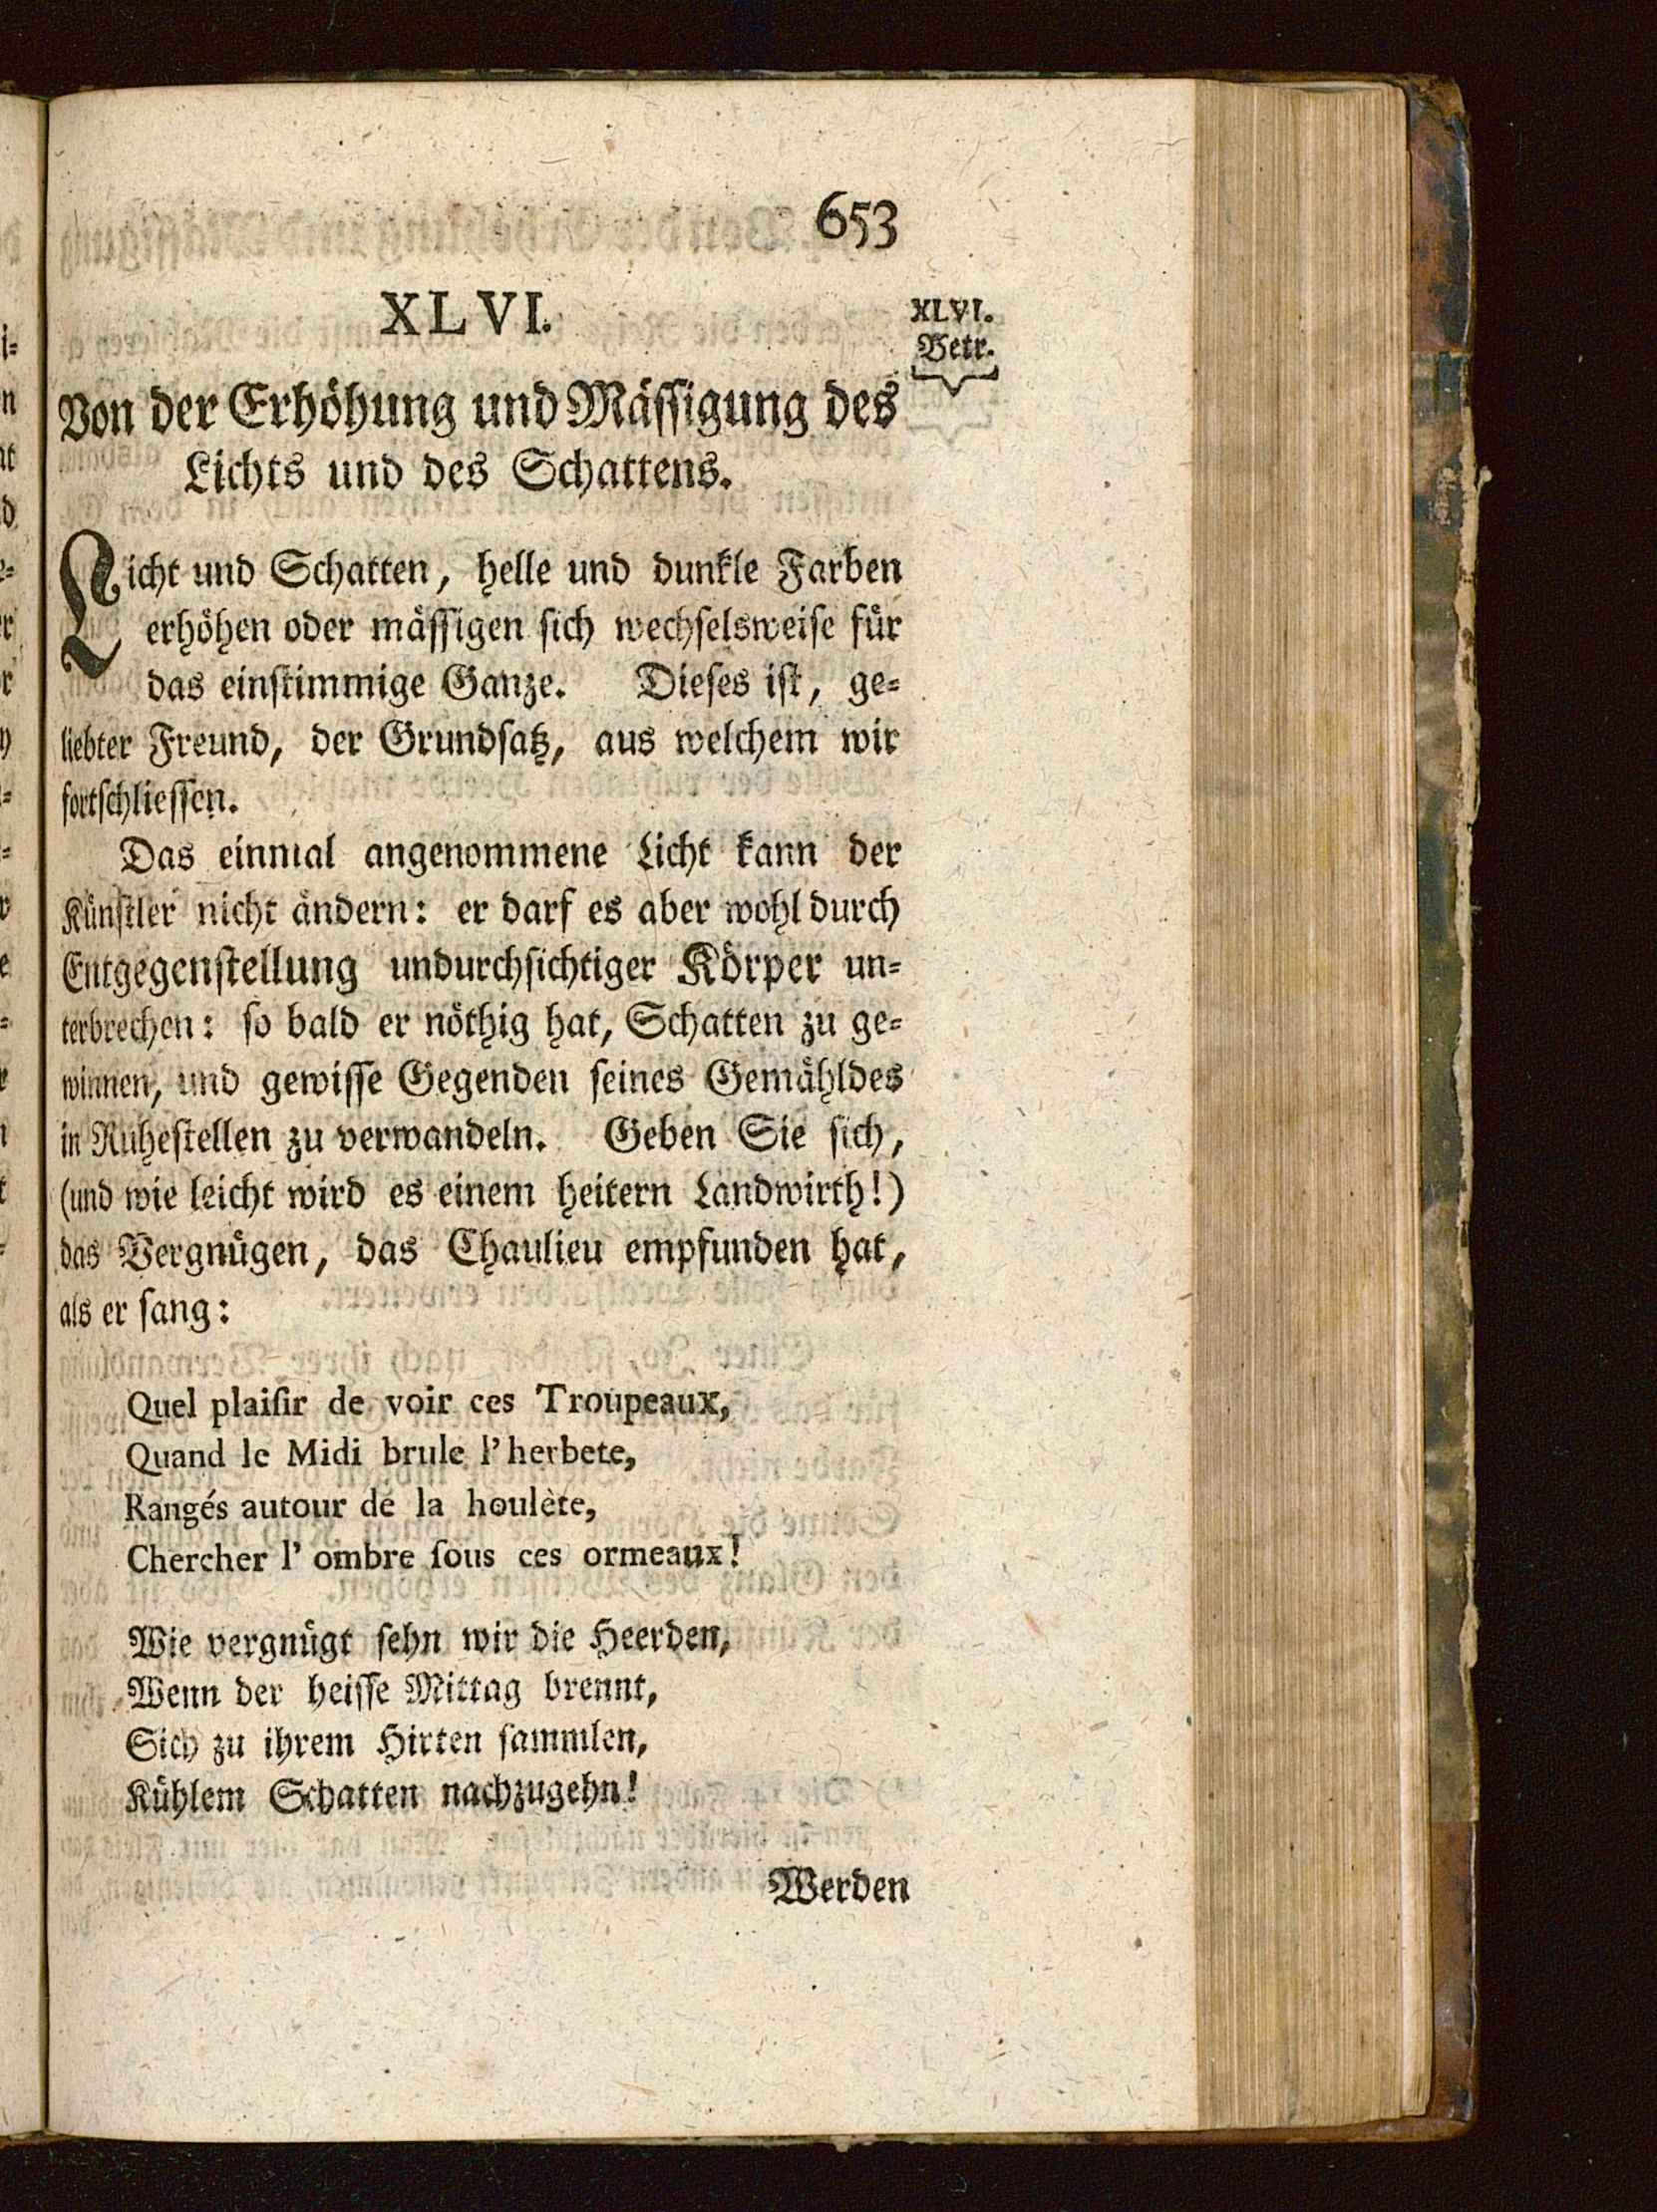 653
XLVI.
XLVI.
Betr.
Von der Erhöhung und Mässigung des
Lichts und des Schattens.
Licht und Schatten, helle und dunkle Farben
erhöhen oder mässigen sich wechselsweise für
das einstimmige Ganze. Dieses ist, ge-
liebter Freund, der Grundsatz, aus welchem wir
fortschliessen.
Das einmal angenommene Licht kann der
Künstler nicht ändern: er darf es aber wohl durch
Entgegenstellung undurchsichtiger Körper un-
terbrechen: so bald er nöthig hat, Schatten zu ge-
winnen, und gewisse Gegenden seines Gemähldes
in Ruhestellen zu verwandeln. Geben Sie sich,
(und wie leicht wird es einem heitern Landwirth!)
das Vergnügen, das Chaulieu empfunden hat,
als er sang:
Quel plaiſir de voir ces Troupeaux,
Quand le Midi brule l'herbete,
Rangés autour de la houlète,
Chercher l' ombre ſous ces ormeaux!
Wie vergnügt sehn wir die Heerden,
Wenn der heisse Mittag brennt,
Sich zu ihrem Hirten sammlen,
Kühlem Schatten nachzugehn!
Werden